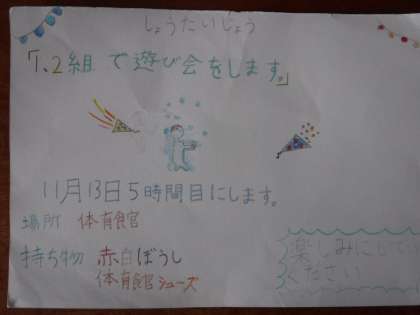 しょうたいじょう
「1、2組で遊び会をします。」
11月13日5時間目にします。
場所 体育食官
持ち物 赤白ぼうし
体育食官シューズ
楽しみにしてて
ください